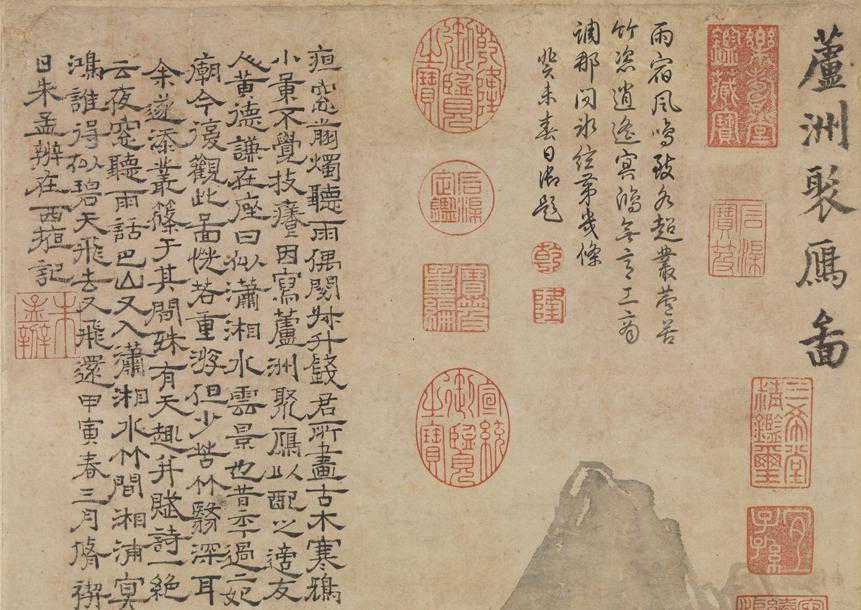 蘆洲聚鴈啚
樂壽堂鑑藏寶
石渠寶笈
三希堂精鑑璽
宜子孫
雨宿風鳴致各超叢菅苦
竹恣逍遙冥鴻無意工商
調那問氷絃第幾條
癸未春日御題
乾
隆
乾隆御覽之寶
石渠定鑑
寶笈重編
宣統御覽之寶
垣窓翦燭聽雨偶閱叔升錢君所畫古木寒鴉
小景不覺技癢因寫蘆洲聚鴈以配之適友
人黃德謙在座曰似瀟湘水雲景也昔予過二妃
廟今復觀此啚恍若重游但少苦竹翳深耳
余遂添叢篠于其間殊有天趣并賦詩一絕
云夜窓聽雨話巴山又入瀟湘水竹間湘浦冥
鴻誰得似碧天飛去又飛還甲寅春三月脩禊
日朱孟辨在西垣記
朱孟辨